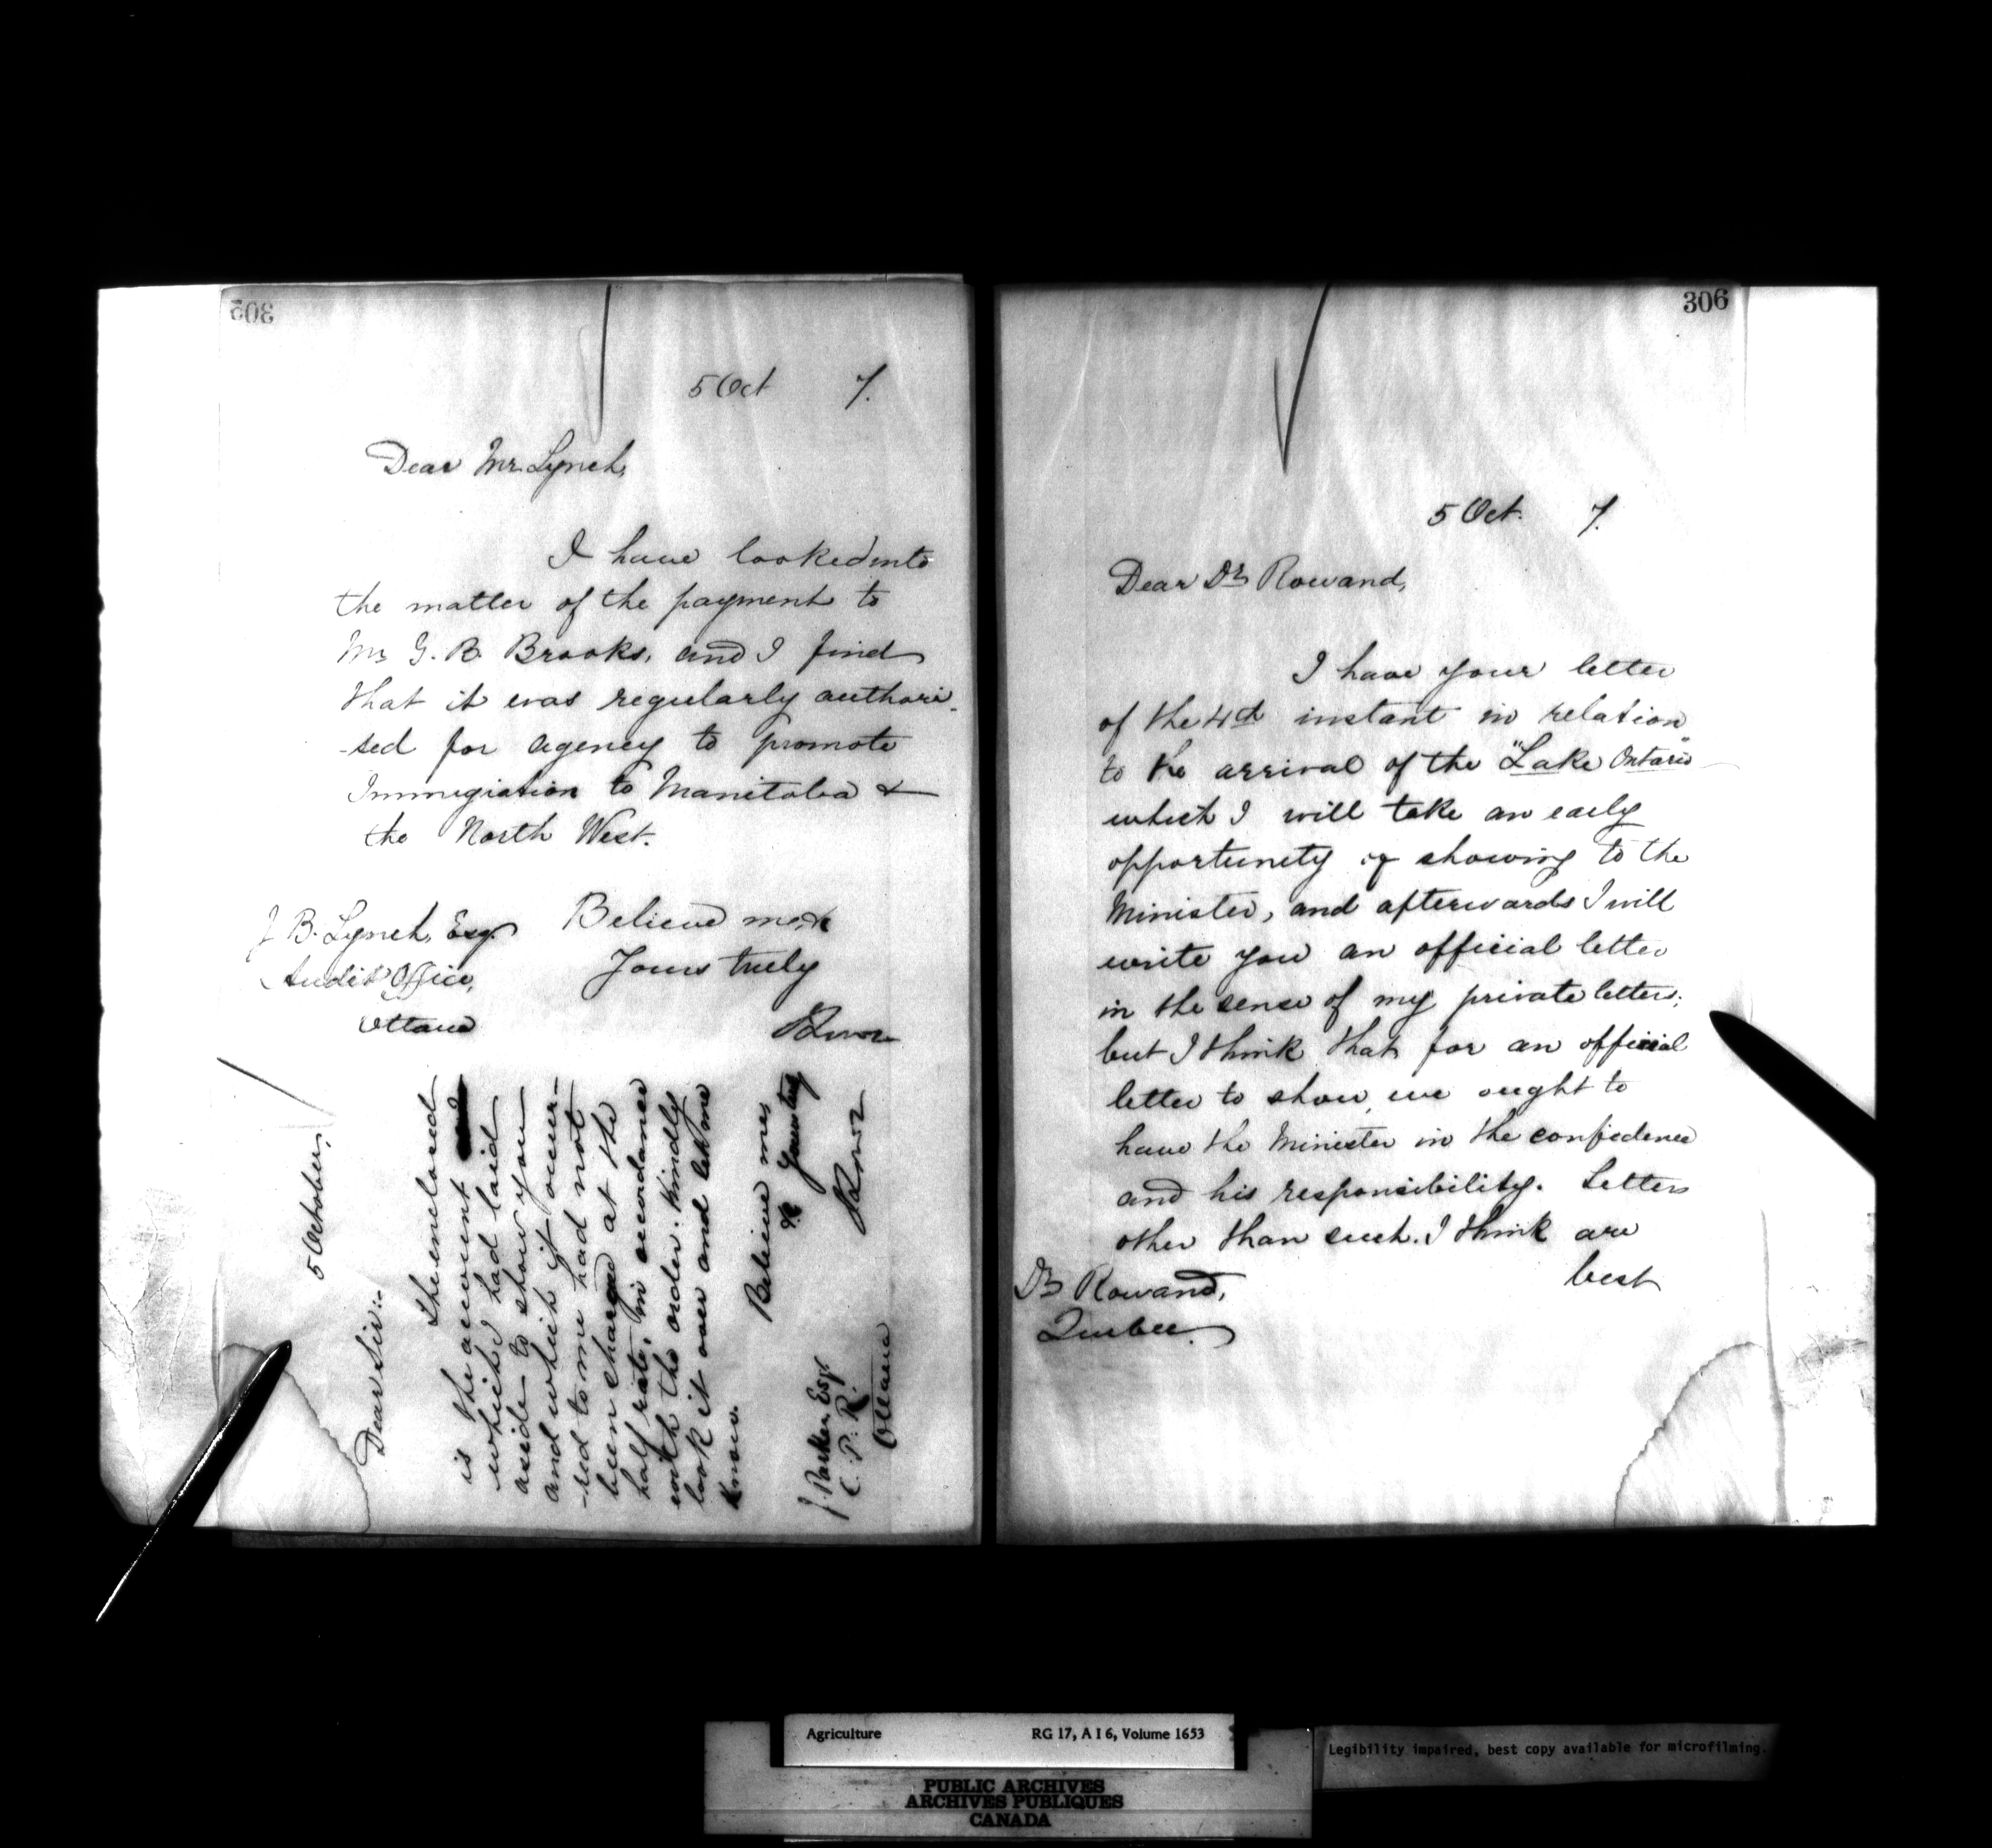 305
5 Oct 7.
Dear Mr. Lynch,
I have looked into
the matter of the payment to
Mr G. B. Brooks, and I find
that it was regularly authori-
-sed for agency to promote
Immigration to Manitoba &
the North West.
Believe me
Yours truly
J B. Lynch, Esq.
Audit Office,
Ottawa
5 October,
Dear Sir:
The enclosed
is the account
which I had laid
aside to show you
and which it occur-
-red to me had not
been charged at the
half rate, in accordance
with the order. Kindly
look it over and let me
know.
Believe me,
Yours truly
J. Parker Esq.
C. P. R.
Ottawa
306
5 Oct. 7.
Dear Dr Rowand,
I have your letter
of the 4th instant in relation
to the arrival of the "Lake Ontario"
which I will take an early
opportunity of showing to the
Minister, and afterwards I will
write you an official letter
in the sense of my private letters;
but I think that for an official
letter to show, we ought to
have the Minister in the confidence
and his responsibility. Letters
other than such I think are
best
Dr Rowand,
Quebec.
Agriculture RG 17, A I 6, Volume 1653
Legibility impaired, best copy available for microfilming.
PUBLIC ARCHIVES
ARCHIVES PUBLIQUES
CANADA